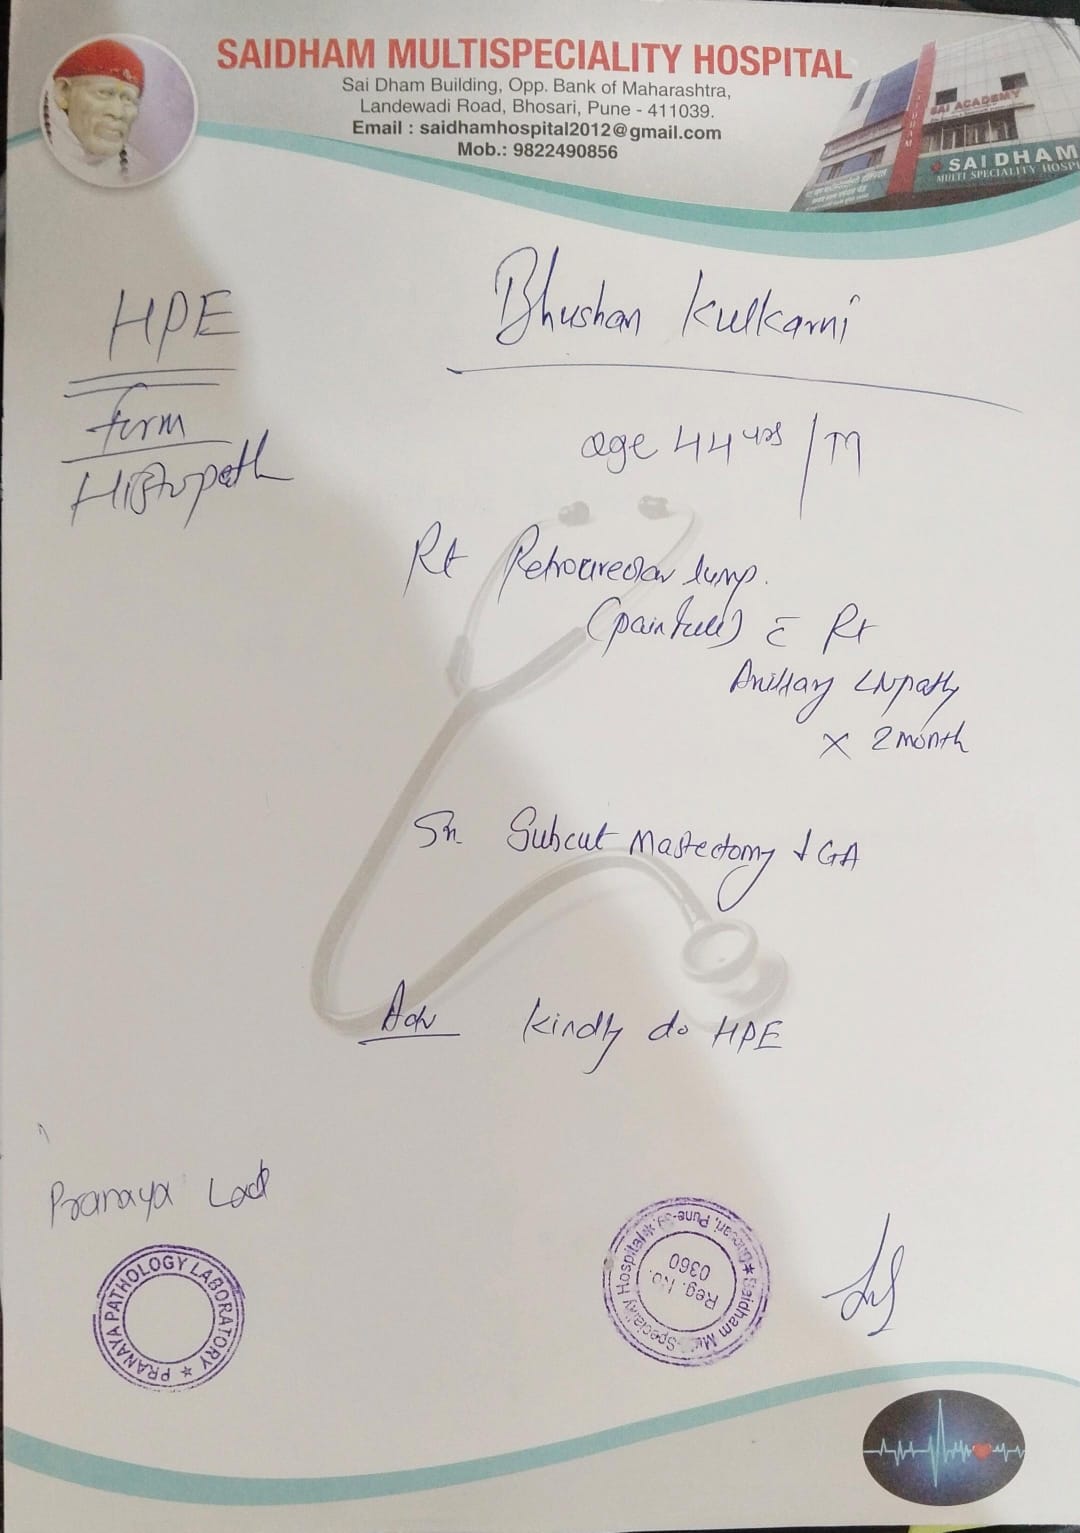 SAIDHAM MULTISPECIALITY HOSPITAL
Sai Dham Building, Opp. Bank of Maharashtra,
Landewadi Road, Bhosari, Pune - 411039.
Email : saidhamhospital2012@gmail.com
Mob.: 9822490856
SAIDHAM
SAI ACADEMY
SAI DHAM
MULTI SPECIALITY HOSPI
HPE
Form
Histopath
Bhushan Kulkarni
age 44 yrs / M
Rt Retroareolar lump.
(painfull) c̄ Rt
Axillary LNpathy
x 2 month
Subcut Mastectomy GA
Adv Kindly do HPE
Pranaya Lab
PRANAYA PATHOLOGY LABORATORY
Saidham Multi-Speciality Hospital Bhosari, Pune-39
Reg. No.
0360